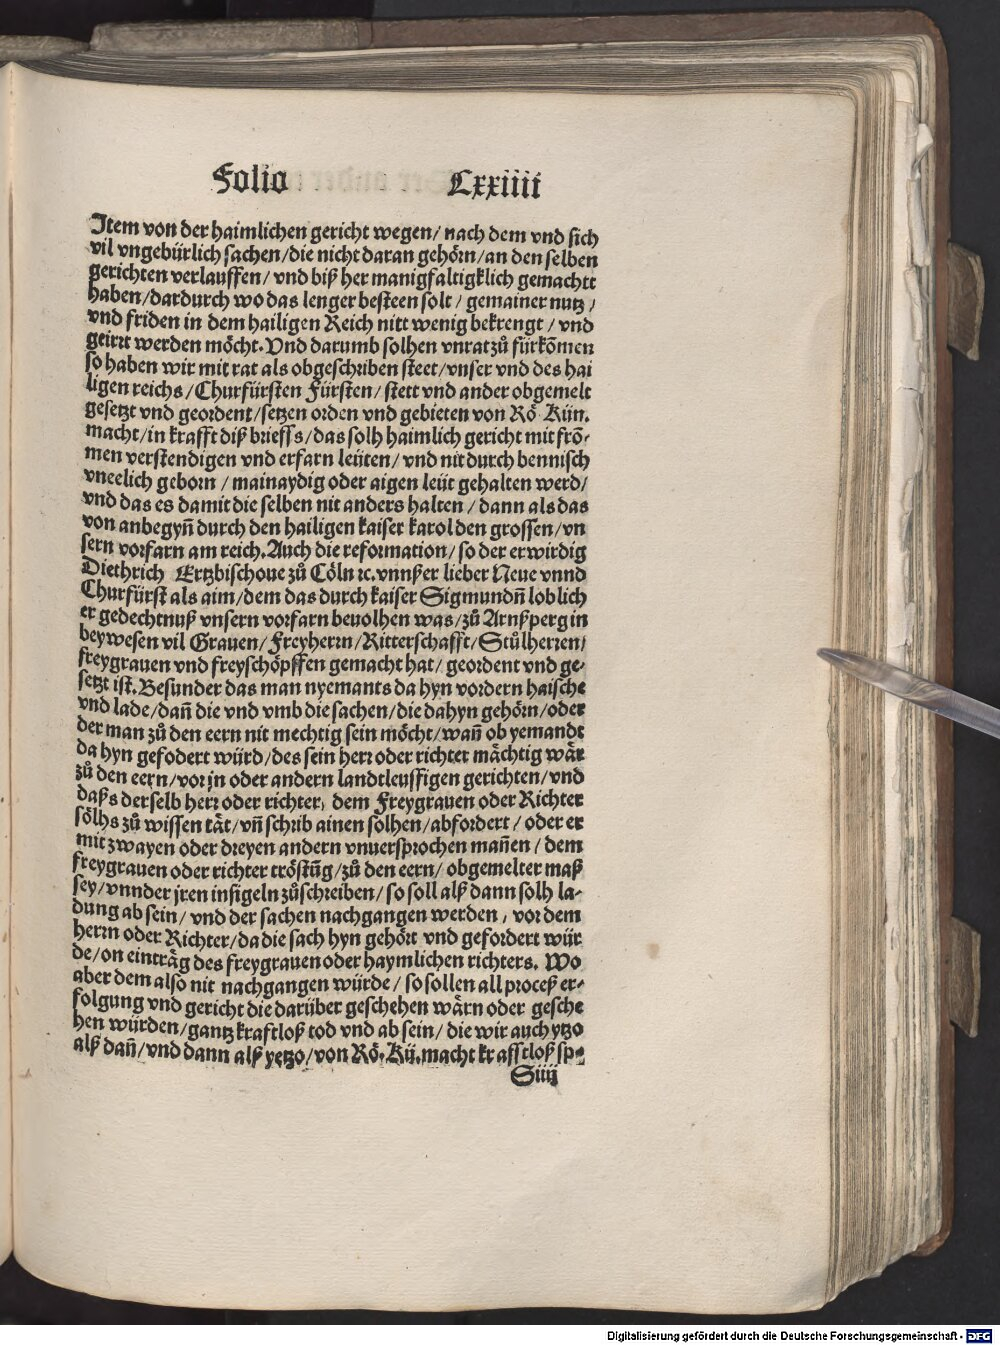 Folio Lxxiiii
Item von der haimlichen gericht wegen/ nach dem vnd sich
vil vngebürlich sachen/die nicht daran gehörn/an den selben
gerichten verlauffen/ vnd biß her manigfaltigklich gemacht
haben/dardurch wo das lenger besteen solt/ gemainer nutz/
vnd friden in dem hailigen Reich nitt wenig bekrengt/ vnd
geirrt werden möcht. Vnd darumb solhen vnrat zů fürkõmen
so haben wir mit rat als obgeschriben steet/vnser vnd des hai
ligen reichs/Churfürsten Fürsten/ stett vnd ander obgemelt
gesetzt vnd geordent/setzen orden vnd gebieten von Rö Kün.
macht/in krafft diß brieffs/das solh haimlich gericht mit frõ-
men verstendigen vnd erfarn leüten/ vnd nit durch bennisch
vneelich geborn/ mainaydig oder aigen leüt gehalten werd/
vnd das es damit die selben nit anders halten/ dann als das
von anbegyñ durch den hailigen kaiser karol den grossen/vn
sern vorfarn am reich. Auch die reformation/ so der erwirdig
Diethrich Ertzbischoue zů Cöln ꝛc. vnnßer lieber Neue vnnd
Churfürst als aim/dem das durch kaiser Sigmundñ loblich
er gedechtnuß vnsern vorfarn beuolhen was/zů Arnßperg in
beywesen vil Grauen/Freyherrn/Ritterschafft/Stůlherren/
freygrauen vnd freyschöpffen gemacht hat/ geordent vnd ge-
setzt ist. Besunder das man nyemants da hyn vordern haische
vnd lade/dañ die vnd vmb die sachen/die dahyn gehörn/oder
der man zů den eern nit mechtig sein möcht/wañ ob yemandt
da hyn gefodert würd/des sein herr oder richter mächtig wär
zů den eern/vor jn oder andern landtleuffigen gerichten/vnd
daßs derselb herr oder richter, dem Freygrauen oder Richter
sölhs zů wissen tät/vñ schrib ainen solhen/abfordert/ oder er
mit zwayen oder dreyen andern vnuersprochen mañen/ dem
freygrauen oder richter tröstũg/zů den eern/ obgemelter maß
sey/vnnder jren insigeln zůschreiben/so soll alß dann solh la-
dung ab sein/ vnd der sachen nachgangen werden, vor dem
herrn oder Richter/da die sach hyn gehört vnd gefordert wür
de/on einträg des freygrauen oder haymlichen richters. Wo
aber dem also nit nachgangen würde/ so sollen all proceß er-
folgung vnd gericht die darüber geschehen wärn oder gesche
hen würden/gantz kraftloß tod vnd ab sein/ die wir auch ytzo
alß dañ/vnd dann alß yetzo/von Rö. Kü. macht krafftloß sp-
Siiij
Digitalisierung gefördert durch die Deutsche Forschungsgemeinschaft - DFG